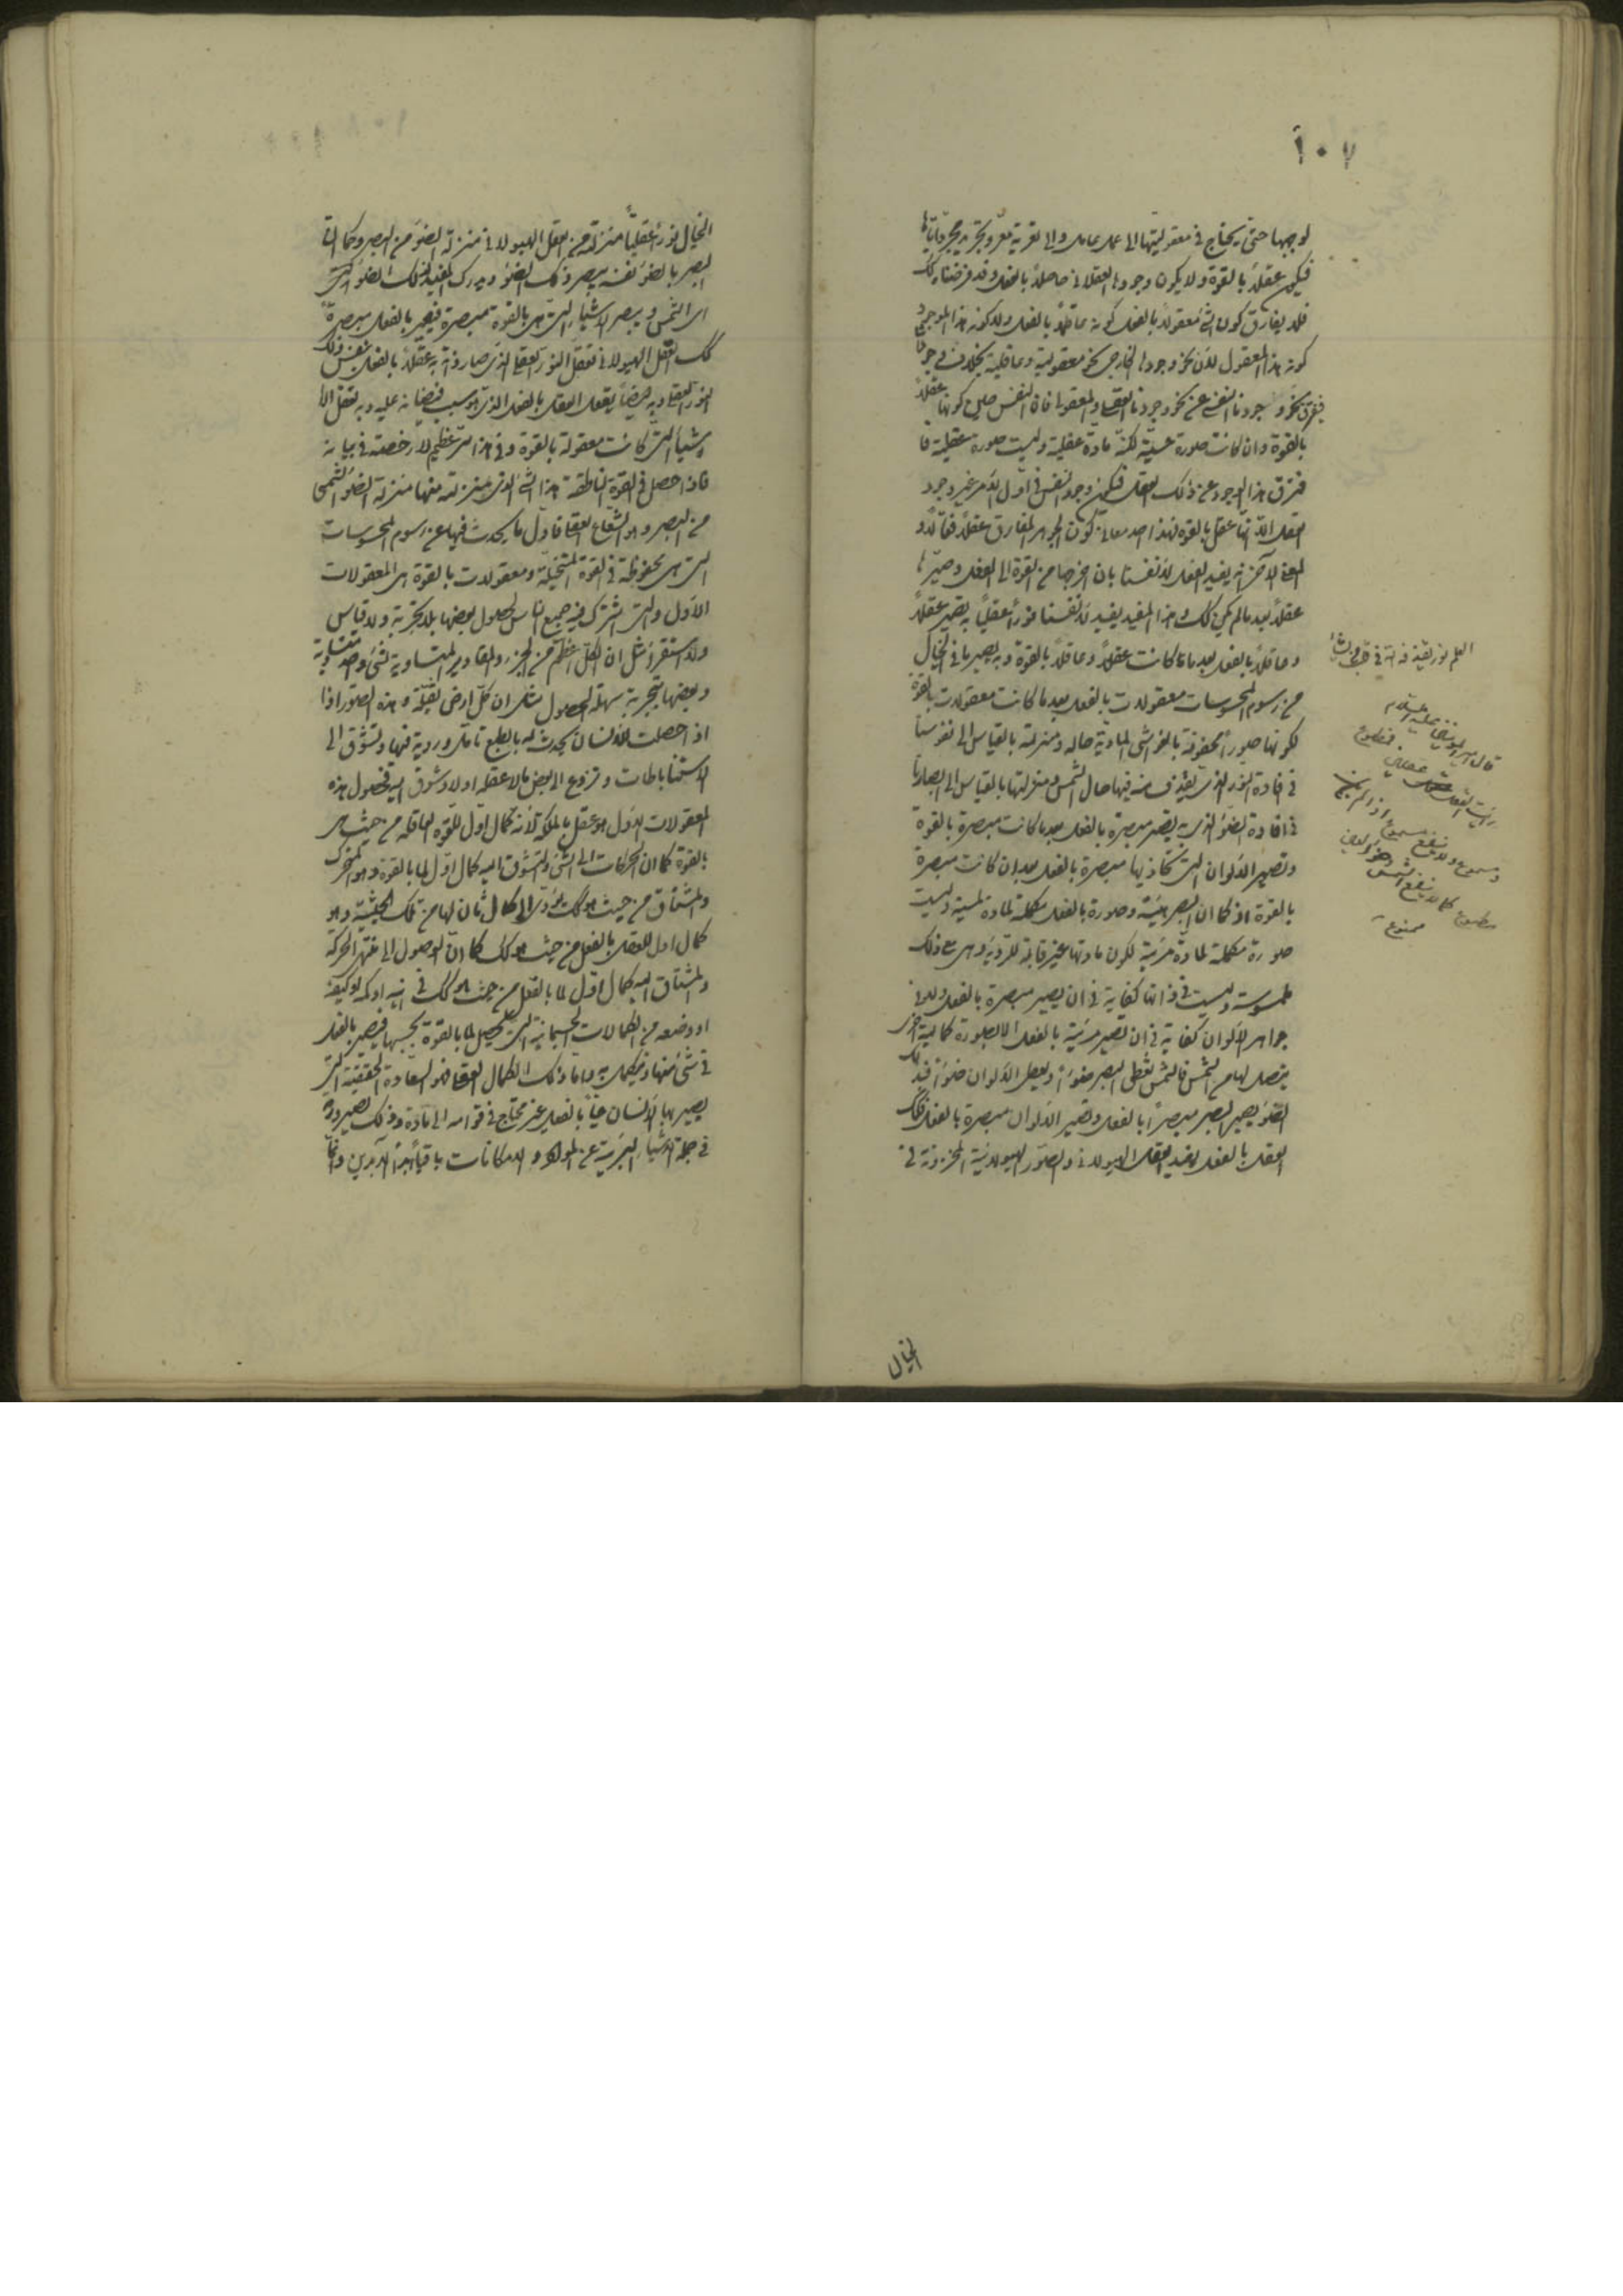 ١٠٧
لوجبها حتى يحتاج في معقوليتها الى عمل عامل والى تعرية معر وتجريد مجرد اياها
فيكون عقلا بالقوة ولا يكون وجودها العقلاني حاصلا بالفعل وقد فرضناه كك
فلا يفارق كون الشئ معقولا بالفعل كونه عاقلا بالفعل ولا كونه هذا الموجود
كونه هذا المعقول لان نحو وجودها الخارجى نحو معقولية وعاقلية بخلاف
نحو وجودنا النفسى عن نحو وجودنا العقلى والمعقول فان النفس حين كونها عقلا
بالقوة وان كانت صورة حسية لكنه مادة عقلية وليست صورة عقلية
فتفرق هذا الوجود عن ذلك العقل فيكون وجود النفس في اول الامر غير وجود
العقل الا انها عقل بالقوة فهذا احد معانى كون الجوهر المفارق عقلا فعالا و
المعنى الآخر انه يفيد العقل لانفسنا بان اخرجها من القوة الى الفعل وصيرها
عقلا بعد ما لم يكن كك وهذا المفيد يفيد لانفسنا نورا عقليا به تصير عقلا
وعاقلا بالفعل بعد ما كانت عقلا وعاقلا بالقوة وبه يصير ما في الخيال
من رسوم المحسوسات معقولات بالفعل بعد ما كانت معقولات بالقوة
لكونها صورا محفوفة بالغواشى المادية حاله ومنزلته بالقياس الى نفوسنا
في افادة النور الذى يقذف منه فيها حال الشمس ومنزلتها بالقياس الى ابصارنا
في افادة الضوء الذى به يصير مبصرة بالفعل بعد ما كانت مبصرة بالقوة
وتصير الالوان التى تحاذيها مبصرة بالفعل بعد ان كانت مبصرة
بالقوة اذ كما ان البصر هيئة وصورة بالفعل مكملة لمادة لمسية وليست
صورة مكملة لمادة مرئية لكون مادتها غير قابلة للرؤية وهى مع ذلك
ملموسة وليست في ذاتها كفاية في ان يصير مبصرة بالفعل ولا في
جواهر الالوان كفاية في ان تصير مرئية بالفعل الا بصورة كمالية اخرى
يتصل بها من الشمس فالشمس تعطى البصر ضوءا ويعطى الالوان ضوءا فبذلك
الضوء يصير البصر مبصرا بالفعل وتصير الالوان مبصرة بالفعل فكذلك
العقل بالفعل يفيد العقل الهيولانى والصور الهيولانية المخزونة في
الخيال
العلم نور يقذفه الله في قلب من يشاء
قال امير المؤمنين عليه السلام
رأيت العقل عقلين فمطبوع
ومسموع ولا ينفع مسموع اذا لم يكن
مطبوع كما لا ينفع الشمس وضوء العين
ممنوع
الخيال نورا عقليا منزلته من العقل الهيولانى منزلة الضوء من البصر وكما ان
البصر بالضوء نفسه يبصر ذلك الضوء ويدرك المفيد لذلك الضوء الذى
اى الشمس ويبصر الاشياء التى هى بالقوة مبصرة فيصير بالفعل مبصرة
كك العقل الهيولانى تعقل النور العقلى الذى صار ذاته به عقلا بالفعل بنفس ذلك
النور العقلى وبه ايضا يعقل العقل بالفعل الذى هو سبب فيضانه عليه وبه تعقل الا
شياء التى كانت معقولة بالقوة وفي هذا سر عظيم لا رخصة في بيانه
فاذا حصل في القوة الناطقة هذا الشئ الذى منزلته منها منزلة الضوء الشمسى
من البصر وهو الشعاع العقلى فاول ما يحدث فيها عن رسوم المحسوسات
التى هى محفوظة في القوة المتخيلة ومعقولات بالقوة هى المعقولات
الاول والتى اشترك فيه جميع الناس لحصول بعضها بلا تجربة ولا قياس
ولا استقراء مثل ان الكل اعظم من الجزء والمقادير المتساوية لشئ واحد متساوية
وبعضها بتجربة سهلة الحصول مثل ان كل ارض ثقيلة وهذه الصور اذا
اذ احصلت للانسان يحدث له بالطبع تامل وروية فيها وتشوق الى
الاستنباطات ونزوع الى بعض ما لا عقله اولا وشوق اليه فحصول هذه
المعقولات الاول هو عقل بالملكة لانه كمال اول للقوة العاقلة من حيث هى
بالقوة كما ان الحركات الى الشئ والتشوق اليه كمال اول لما بالقوة وهو المتحرك
والمشتاق من حيث هو كك يؤدى الى كمال ثان لها من تلك الحيثية وهو
كمال اول للعقل بالفعل من حيث هو كك كما ان الوصول الى منتهى الحركة
والمشتاق اليه كمال اول لما بالفعل من حيث هو كك في اينه او كمه او كيفه
او وضعه من الكمالات الجسمانية التى يحصل لما بالقوة بحسبها فيصير بالفعل
في شئ منها ويكمل به واما ذلك الكمال العقلى فهو السعادة الحقيقية التى
يصير بها الانسان حيا بالفعل غير محتاج في قوامه الى مادة وذلك لصيرورته
في جملة الاشياء البريئة عن المواد والامكانات باقيا ابد الآبدين وانما